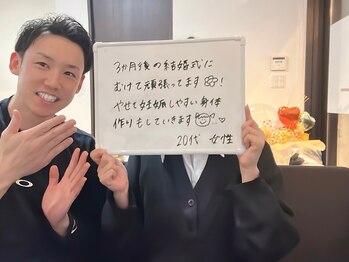 3ヶ月後の結婚式に
むけて頑張ってます!
やせて妊娠しやすい身体
作りもしていきます
20代 女性